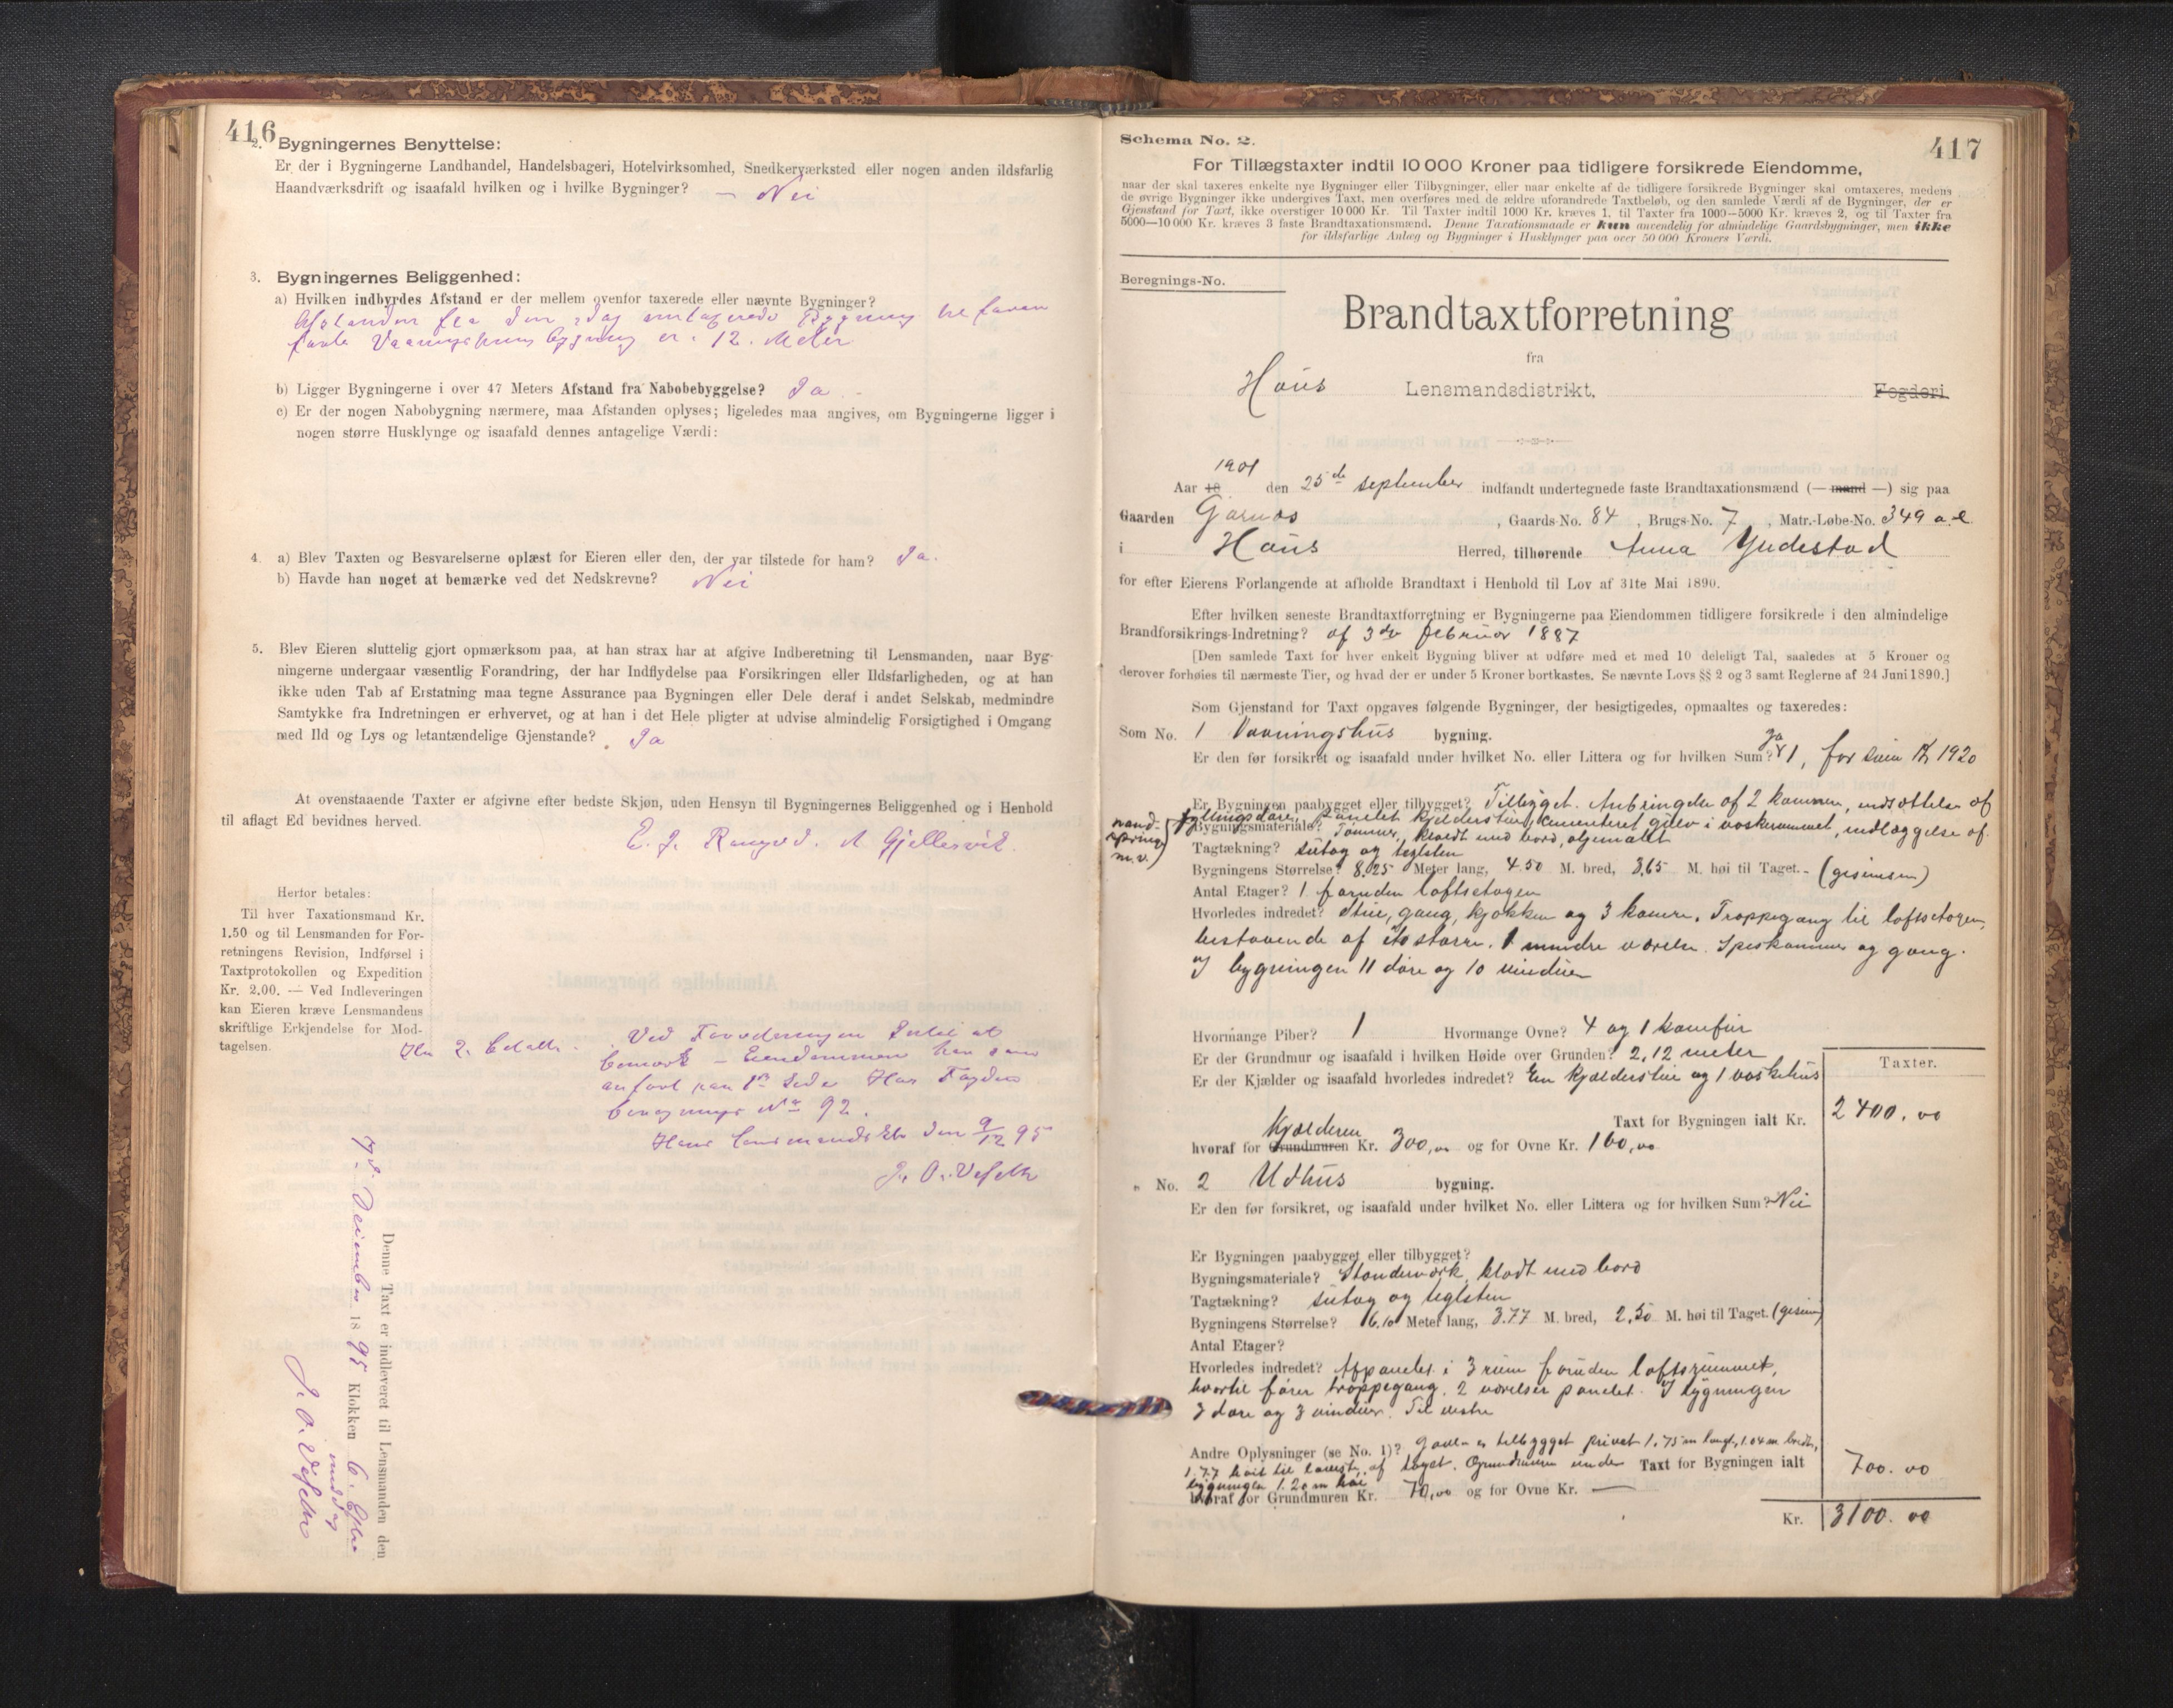 416
2. Bygningernes Benyttelse:
Er der i Bygningerne Landhandel, Handelsbageri, Hotelvirksomhed, Snedkerværksted eller nogen anden ildsfarlig
Haandværksdrift og isaafald hvilken og i hvilke Bygninger? — Nei
3. Bygningernes Beliggenhed:
a) Hvilken indbyrdes Afstand er der mellem ovenfor taxerede eller nævnte Bygninger?
Afstanden fra den idag Bygning til
Vaaningshus bygning er 12. Meter
b) Ligger Bygningerne i over 47 Meters Afstand fra Nabobebyggelse? Ja
c) Er der nogen Nabobygning nærmere, maa Afstanden oplyses; ligeledes maa angives, om Bygningerne ligger i
nogen større Husklynge og isaafald dennes antagelige Værdi:
4. a) Blev Taxten og Besvarelserne oplæst for Eieren eller den, der var tilstede for ham? Ja.
b) Havde han noget at bemærke ved det Nedskrevne? Nei
5. Blev Eieren sluttelig gjort opmærksom paa, at han strax har at afgive Indberetning til Lensmanden, naar Byg-
ningerne undergaar væsentlig Forandring, der har Indflydelse paa Forsikringen eller Ildsfarligheden, og at han
ikke uden Tab af Erstatning maa tegne Assurance paa Bygningen eller Dele deraf i andet Selskab, medmindre
Samtykke fra Indretningen er erhvervet, og at han i det Hele pligter at udvise almindelig Forsigtighed i Omgang
med Ild og Lys og letantændelige Gjenstande? Ja
At ovenstaaende Taxter er afgivne efter bedste Skjøn, uden Hensyn til Bygningernes Beliggenhed og i Henhold
til aflagt Ed bevidnes herved.
E. J. A Gjellesvik.
Herfor betales:
Til hver Taxationsmand Kr.
1.50 og til Lensmanden for For-
retningens Revision, Indførsel i
Taxtprotokollen og Expedition
Kr. 2.00. — Ved Indleveringen
kan Eieren kræve Lensmandens
skriftlige Erkjendelse for Mod-
tagelsen.
Kr 2. betalt.
Ved
bemærk – Eiendommen har som
anført paa 1ste Side
No 92.
Haus Lensmands den 9/12 95
Denne Taxt er indleveret til Lensmanden den
7de December 1895 Klokken 6 Efter
middag
417
Schema No. 2.
For Tillægstaxter indtil 10 000 Kroner paa tidligere forsikrede Eiendomme,
naar der skal taxeres enkelte nye Bygninger eller Tilbygninger, eller naar enkelte af de tidligere forsikrede Bygninger skal omtaxeres, medens
de øvrige Bygninger ikke undergives Taxt, men overføres med de ældre uforandrede Taxtbeløb, og den samlede Værdi af de Bygninger, der er
Gjenstand for Taxt, ikke overstiger 10 000 Kr. Til Taxter indtil 1000 Kr. kræves 1, til Taxter fra 1000—5000 Kr. kræves 2, og til Taxter fra
5000—10 000 Kr. kræves 3 faste Brandtaxationsmænd. Denne Taxationsmaade er kun anvendelig for almindelige Gaardsbygninger, men ikke
for ildsfarlige Anlæg og Bygninger i Husklynger paa over 50 000 Kroners Værdi.
Beregnings-No.
Brandtaxtforretning
fra
Haus Lensmandsdistrikt, Fogderi
Aar 18 1901 den 25de september indfandt undertegnede faste Brandtaxationsmænd (— mand —) sig paa
Gaarden Garnæs, Gaards-No. 84, Brugs-No. 7, Matr.-Løbe-No. 349 a.e
i Haus Herred, tilhørende Anna Yndestad
for efter Eierens Forlangende at afholde Brandtaxt i Henhold til Lov af 31te Mai 1890.
Efter hvilken seneste Brandtaxtforretning er Bygningerne paa Eiendommen tidligere forsikrede i den almindelige
Brandforsikrings-Indretning? af 3de februar 1887
[Den samlede Taxt for hver enkelt Bygning bliver at udføre med et med 10 deleligt Tal, saaledes at 5 Kroner og
derover forhøies til nærmeste Tier, og hvad der er under 5 Kroner bortkastes. Se nævnte Lovs §§ 2 og 3 samt Reglerne af 24 Juni 1890.]
Som Gjenstand for Taxt opgaves følgende Bygninger, der besigtigedes, opmaaltes og taxeredes:
Som No. 1 Vaaningshus bygning.
Er den før forsikret og isaafald under hvilket No. eller Littera og for hvilken Sum? Ja 1, for sum 1920
Er Bygningen paabygget eller tilbygget? Tilbygget. Anbringelse af 2 kammer, indsættelse af
fyllingsdøre, panelet kjelderstue, cementeret gulv i vaskerummet, indlæggelse af
vand-
springe
m.v.)
Bygningsmateriale? Tømmer, klædt med bord, oljemalet
Tagtækning? sutag og teglsten
Bygningens Størrelse? 8.025 Meter lang, 4.50 M. bred, 3.65 M. høi til Taget. - (gesimsen)
Antal Etager? 1 foruden loftsetagen
Hvorledes indredet? Stue, gang, kjøkken og 3 kamre. Trappegang til loftsetagen,
bestaaende af to større. 1 mindre værelse. Speskammer og gang.
I bygningen 11 døre og 10 vinduer
Hvormange Piber? 1 Hvormange Ovne? 4 og 1 komfur
Er der Grundmur og isaafald i hvilken Høide over Grunden? 2,12 meter
Er der Kjælder og isaafald hvorledes indredet? En kjælderstue og 1 vaskehus
Taxter.
Taxt for Bygningen ialt Kr. 2400.00
Kjælderen
hvoraf for Grundmuren Kr. 300,00 og for Ovne Kr. 160,00
" No. 2 Udhus bygning.
Er den før forsikret, og isaafald under hvilket No. eller Littera og for hvilken Sum? Nei
Er Bygningen paabygget eller tilbygget?
Bygningsmateriale? Standerværk, klædt med bord
Tagtækning? sutag og teglsten
Bygningens Størrelse? 6.10 Meter lang, 3.77 M. bred, 2.50 M. høi til Taget. (gesims)
Antal Etager?
Hvorledes indredet? Afpanelet i 3 rum foruden loftsrummet,
hvortil fører trappegang. 2 værelser panelet. I bygningen
3 døre og 3 vinduer. Til østre
Andre Oplysninger (se No. 1)? Gavl er tilbygget privet 1.75 m langt, 1.04 m bredt,
1.77 høit til laveste af taget. Grundmuren under Taxt for Bygningen ialt 700.00
bygningen 1.20 m høi
hvoraf for Grundmuren Kr. 70,00 og for Ovne Kr. —
Kr. 3100.00